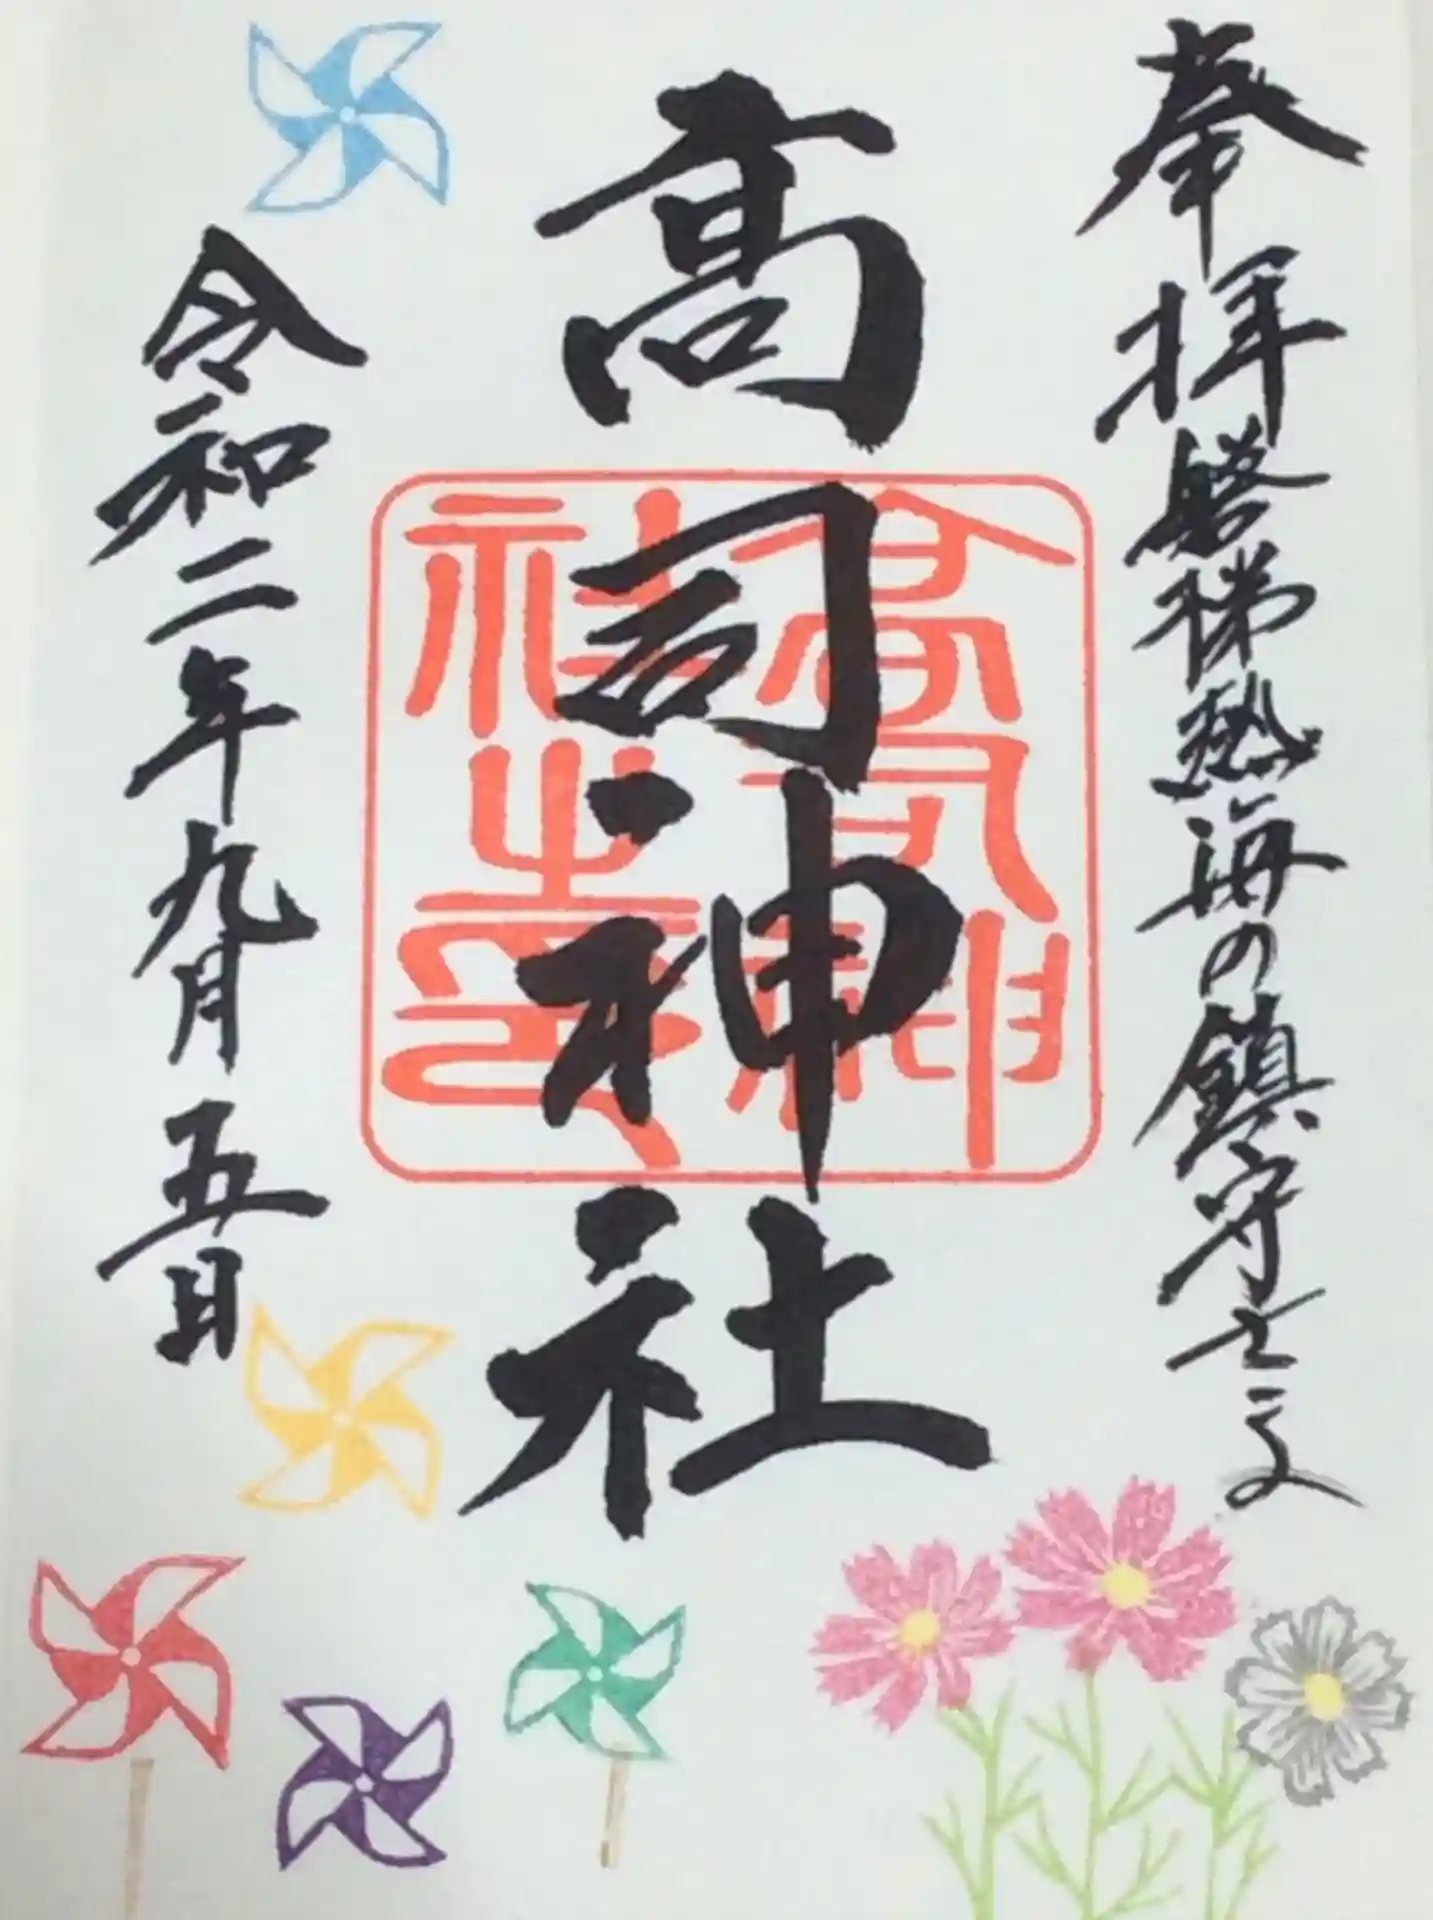 奉拝
磐梯熱海の鎮守
高司神社
高司神社之印
令和二年九月五日